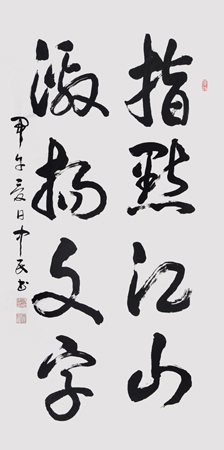 指點江山
激揚文字
甲午夏日中民書